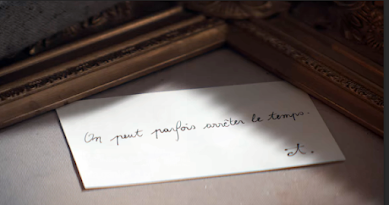 On peut parfois arrêter le temps.